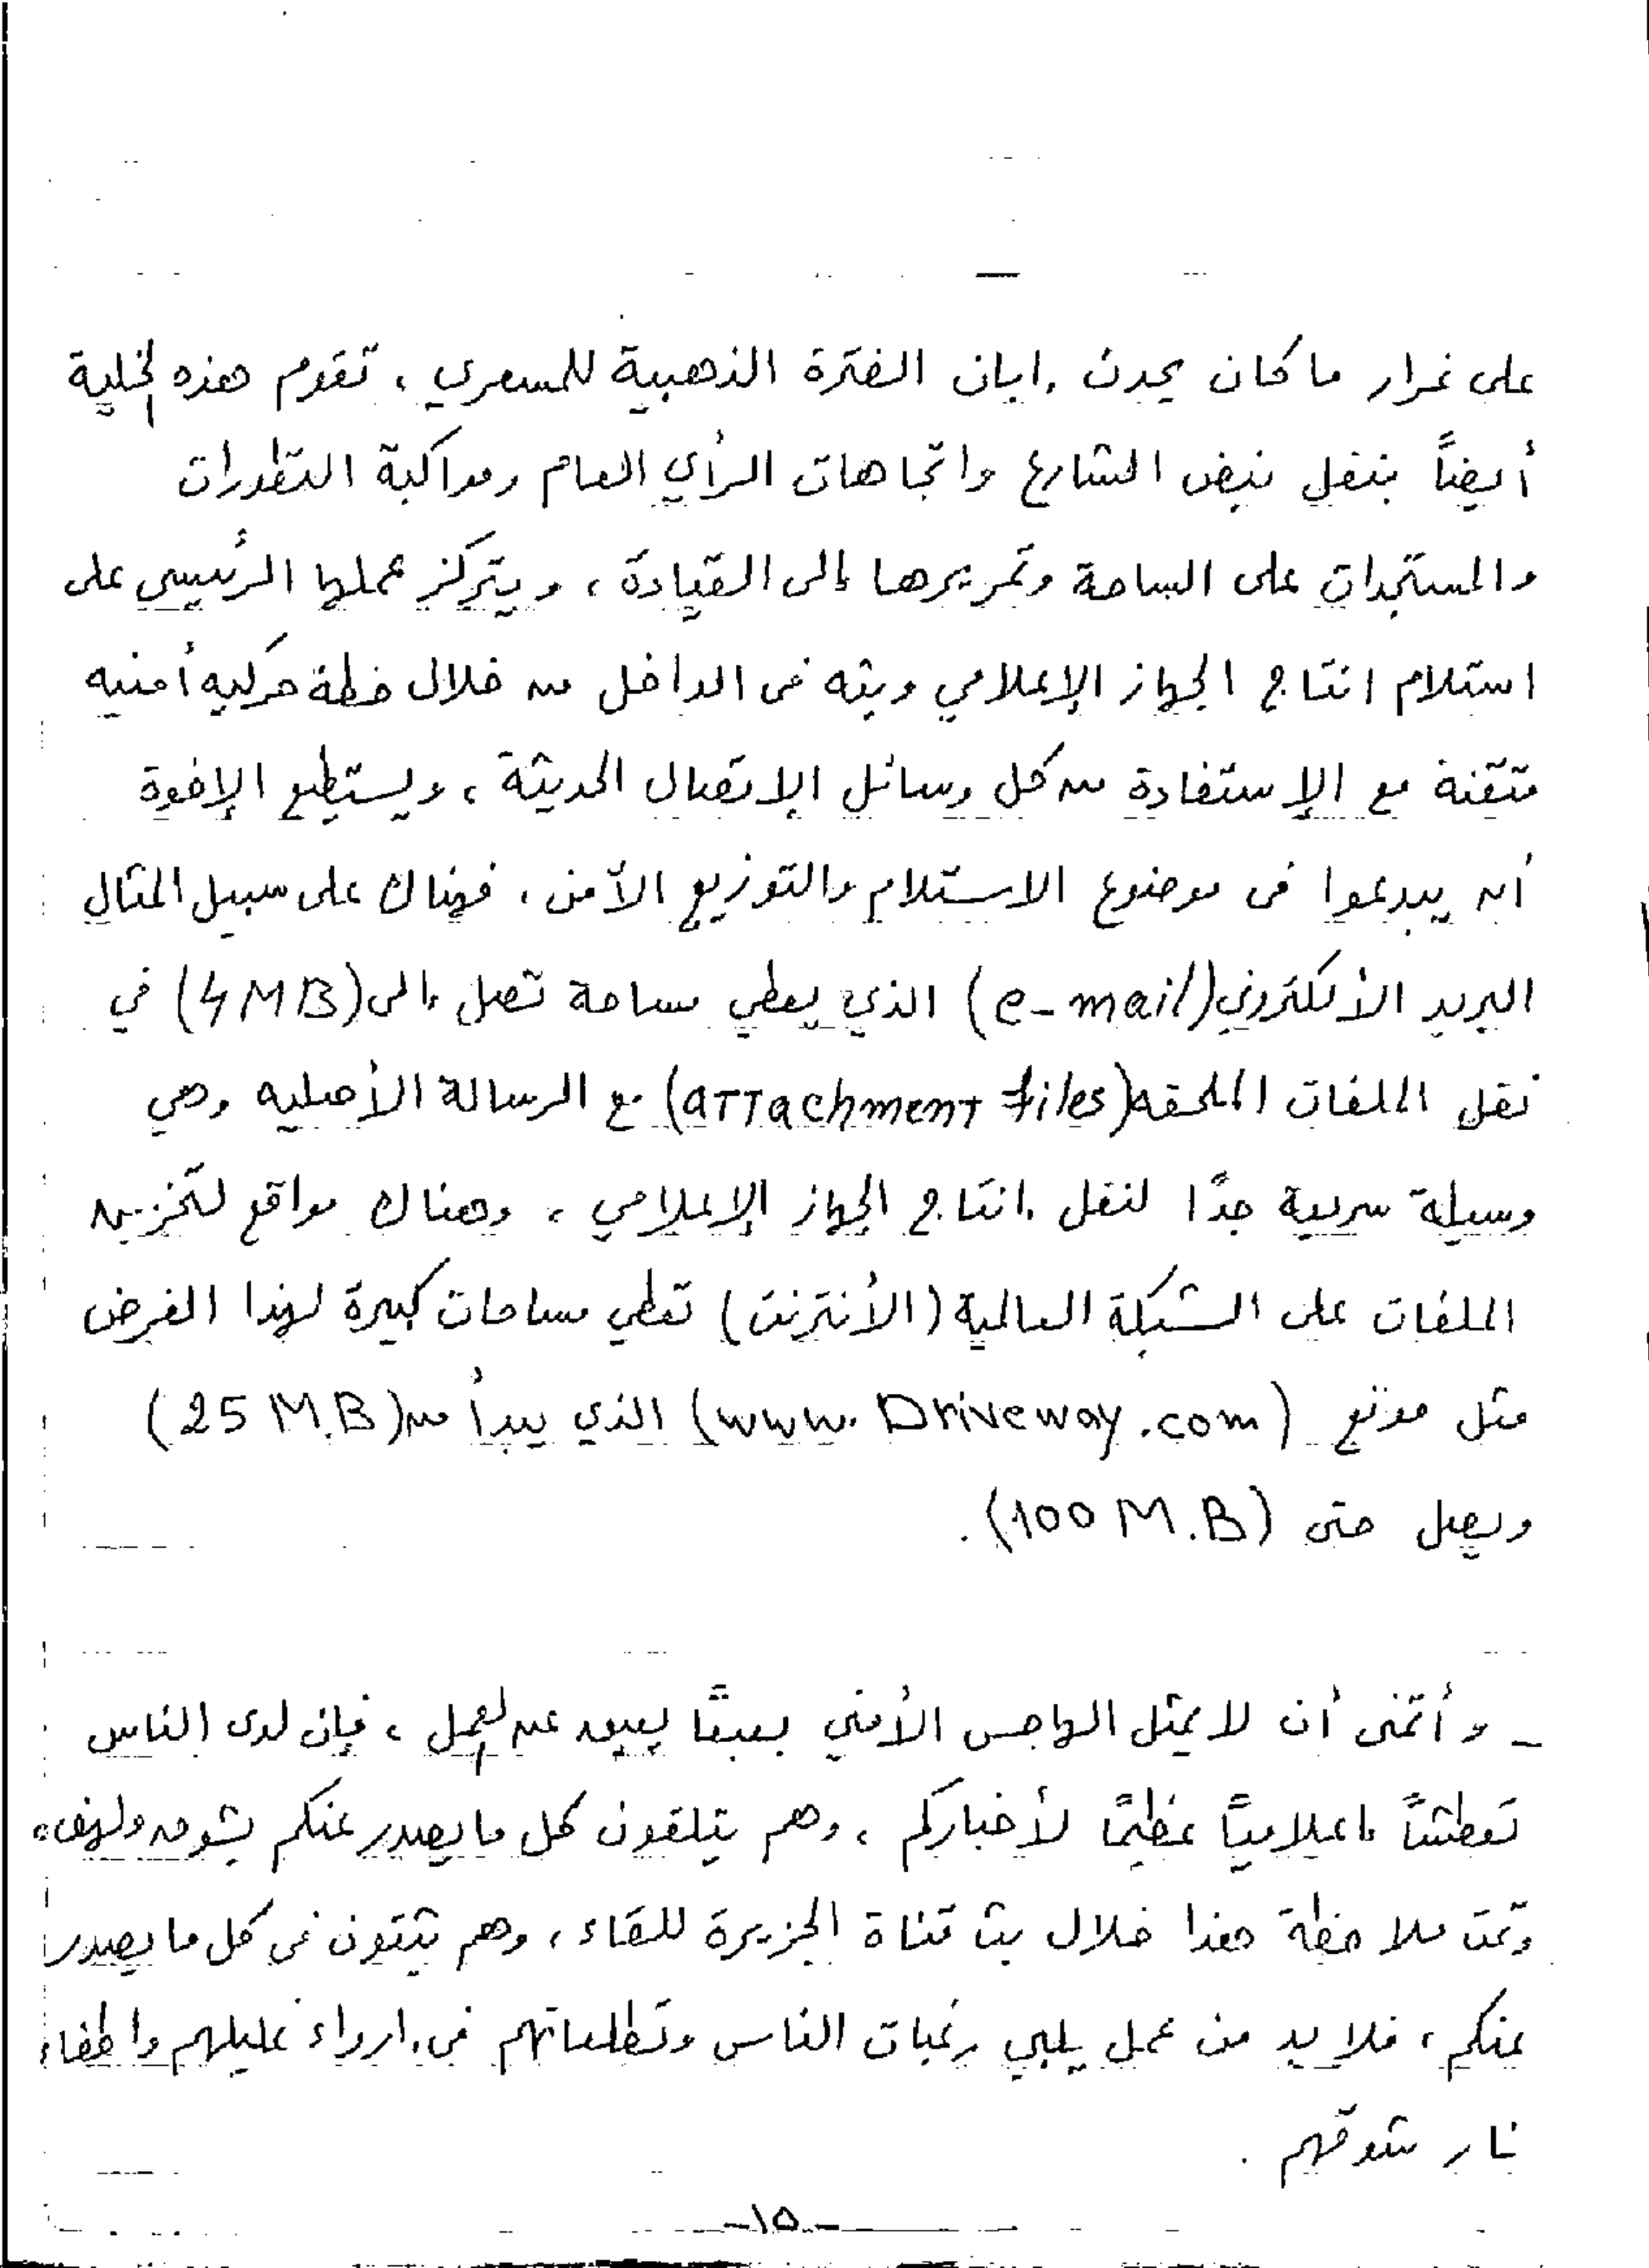 على غرار ما كان يحدث إبان الفترة الذهبية للمسعري ، تقوم هذه الخلية
أيضاً بنقل نبض الشارع واتجاهات الرأي العام ومواكبة التطورات
والمستجدات على الساحة وتمريرها إلى القيادة ، ويتركز عملها الرئيسي على
استلام انتاج الجهاز الإعلامي وبثه في الداخل من خلال خطة حركيه أمنيه
متقنة مع الإستفادة من كل وسائل الإتصال الحديثة ، ويستطيع الإخوة
أن يبدعوا في موضوع الاستلام والتوزيع الآمن ، فهناك على سبيل المثال
البريد الألكتروني (e-mail) الذي يعطي مساحة تصل إلى (4MB) في
نقل الملفات الملحقه (aTTachmenT files) مع الرسالة الأصليه وهي
وسيلة سريعة جدًا لنقل إنتاج الجهاز الإعلامي ، وهناك مواقع لتخزين
الملفات على الشبكة العالمية (الأنترنت) تعطي مساحات كبيرة لهذا الغرض
مثل موقع (www.Driveway.com) الذي يبدأ من (25 M.B)
ويصل حتى (100 M.B) .
- وأتمنى أن لا يمثل الهاجس الأمني بعبعًا يعيق عن العمل ، فإن لدى الناس
تعطشاً إعلامياً عظيمًا لأخباركم ، وهم يتلقون كل ما يصدر عنكم بشوق ولهفه
وتمت ملاحظة هذا خلال بث قناة الجزيرة للقاء ، وهم يثقون في كل ما يصدر
عنكم ، فلا بد من عمل يلبي رغبات الناس وتطلعاتهم في إرواء غليلهم واطفاء
نار شوقهم .
-١٥-